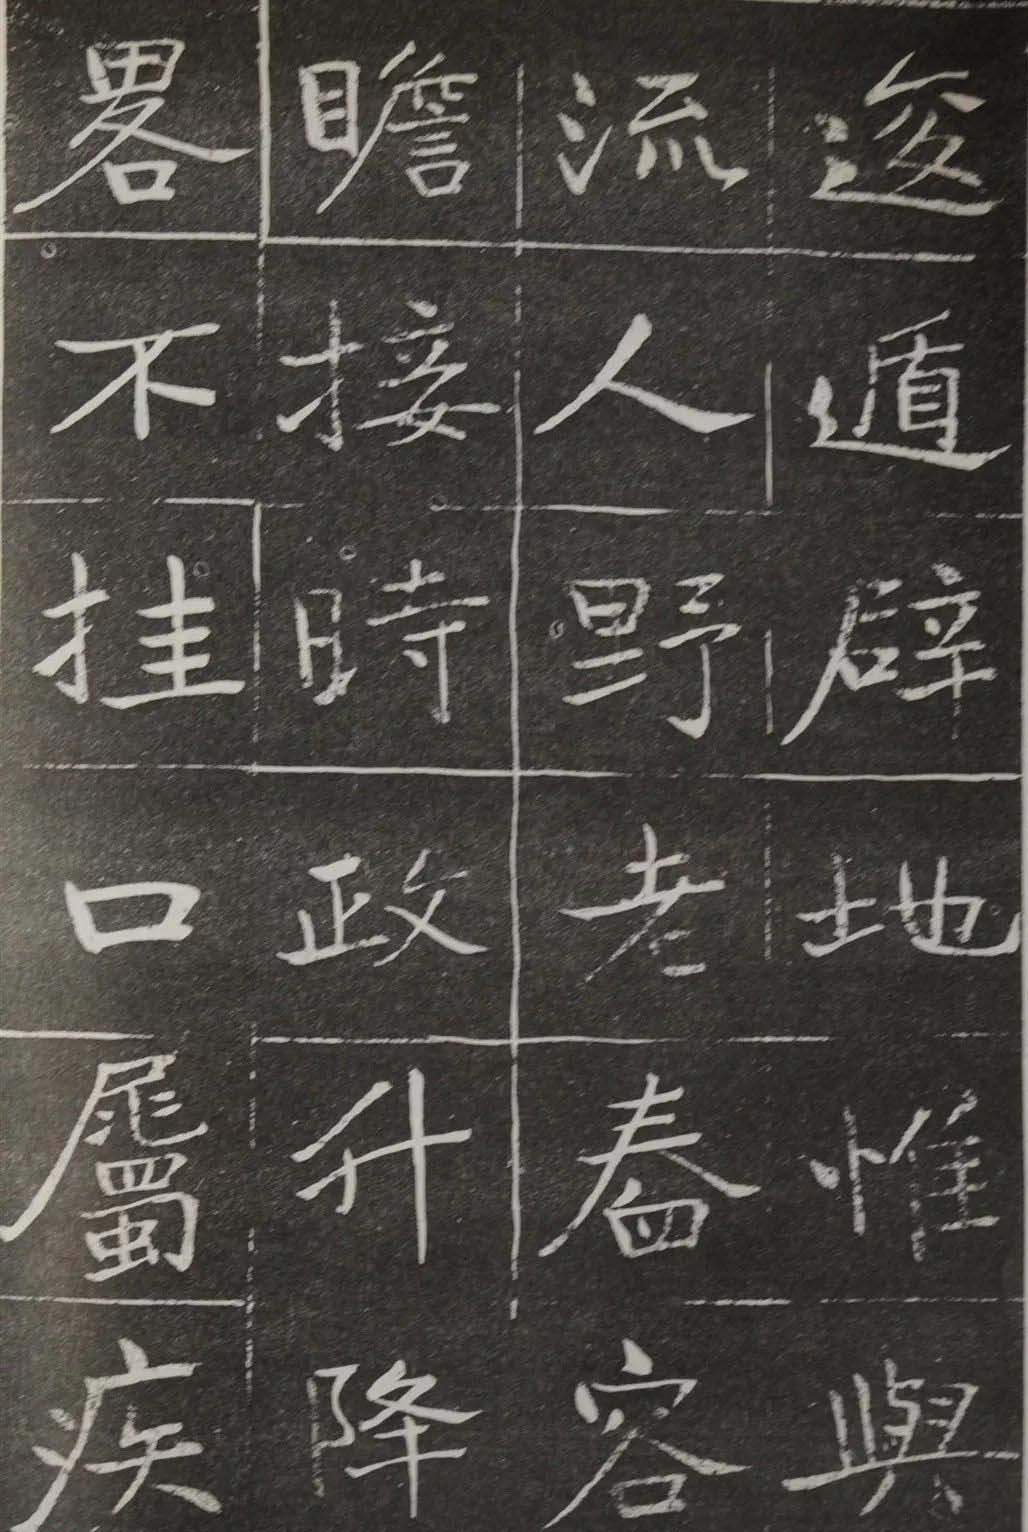 逡遁辟地惟與
流人野老舂容
瞻接時政升降
畧不挂口屬疾